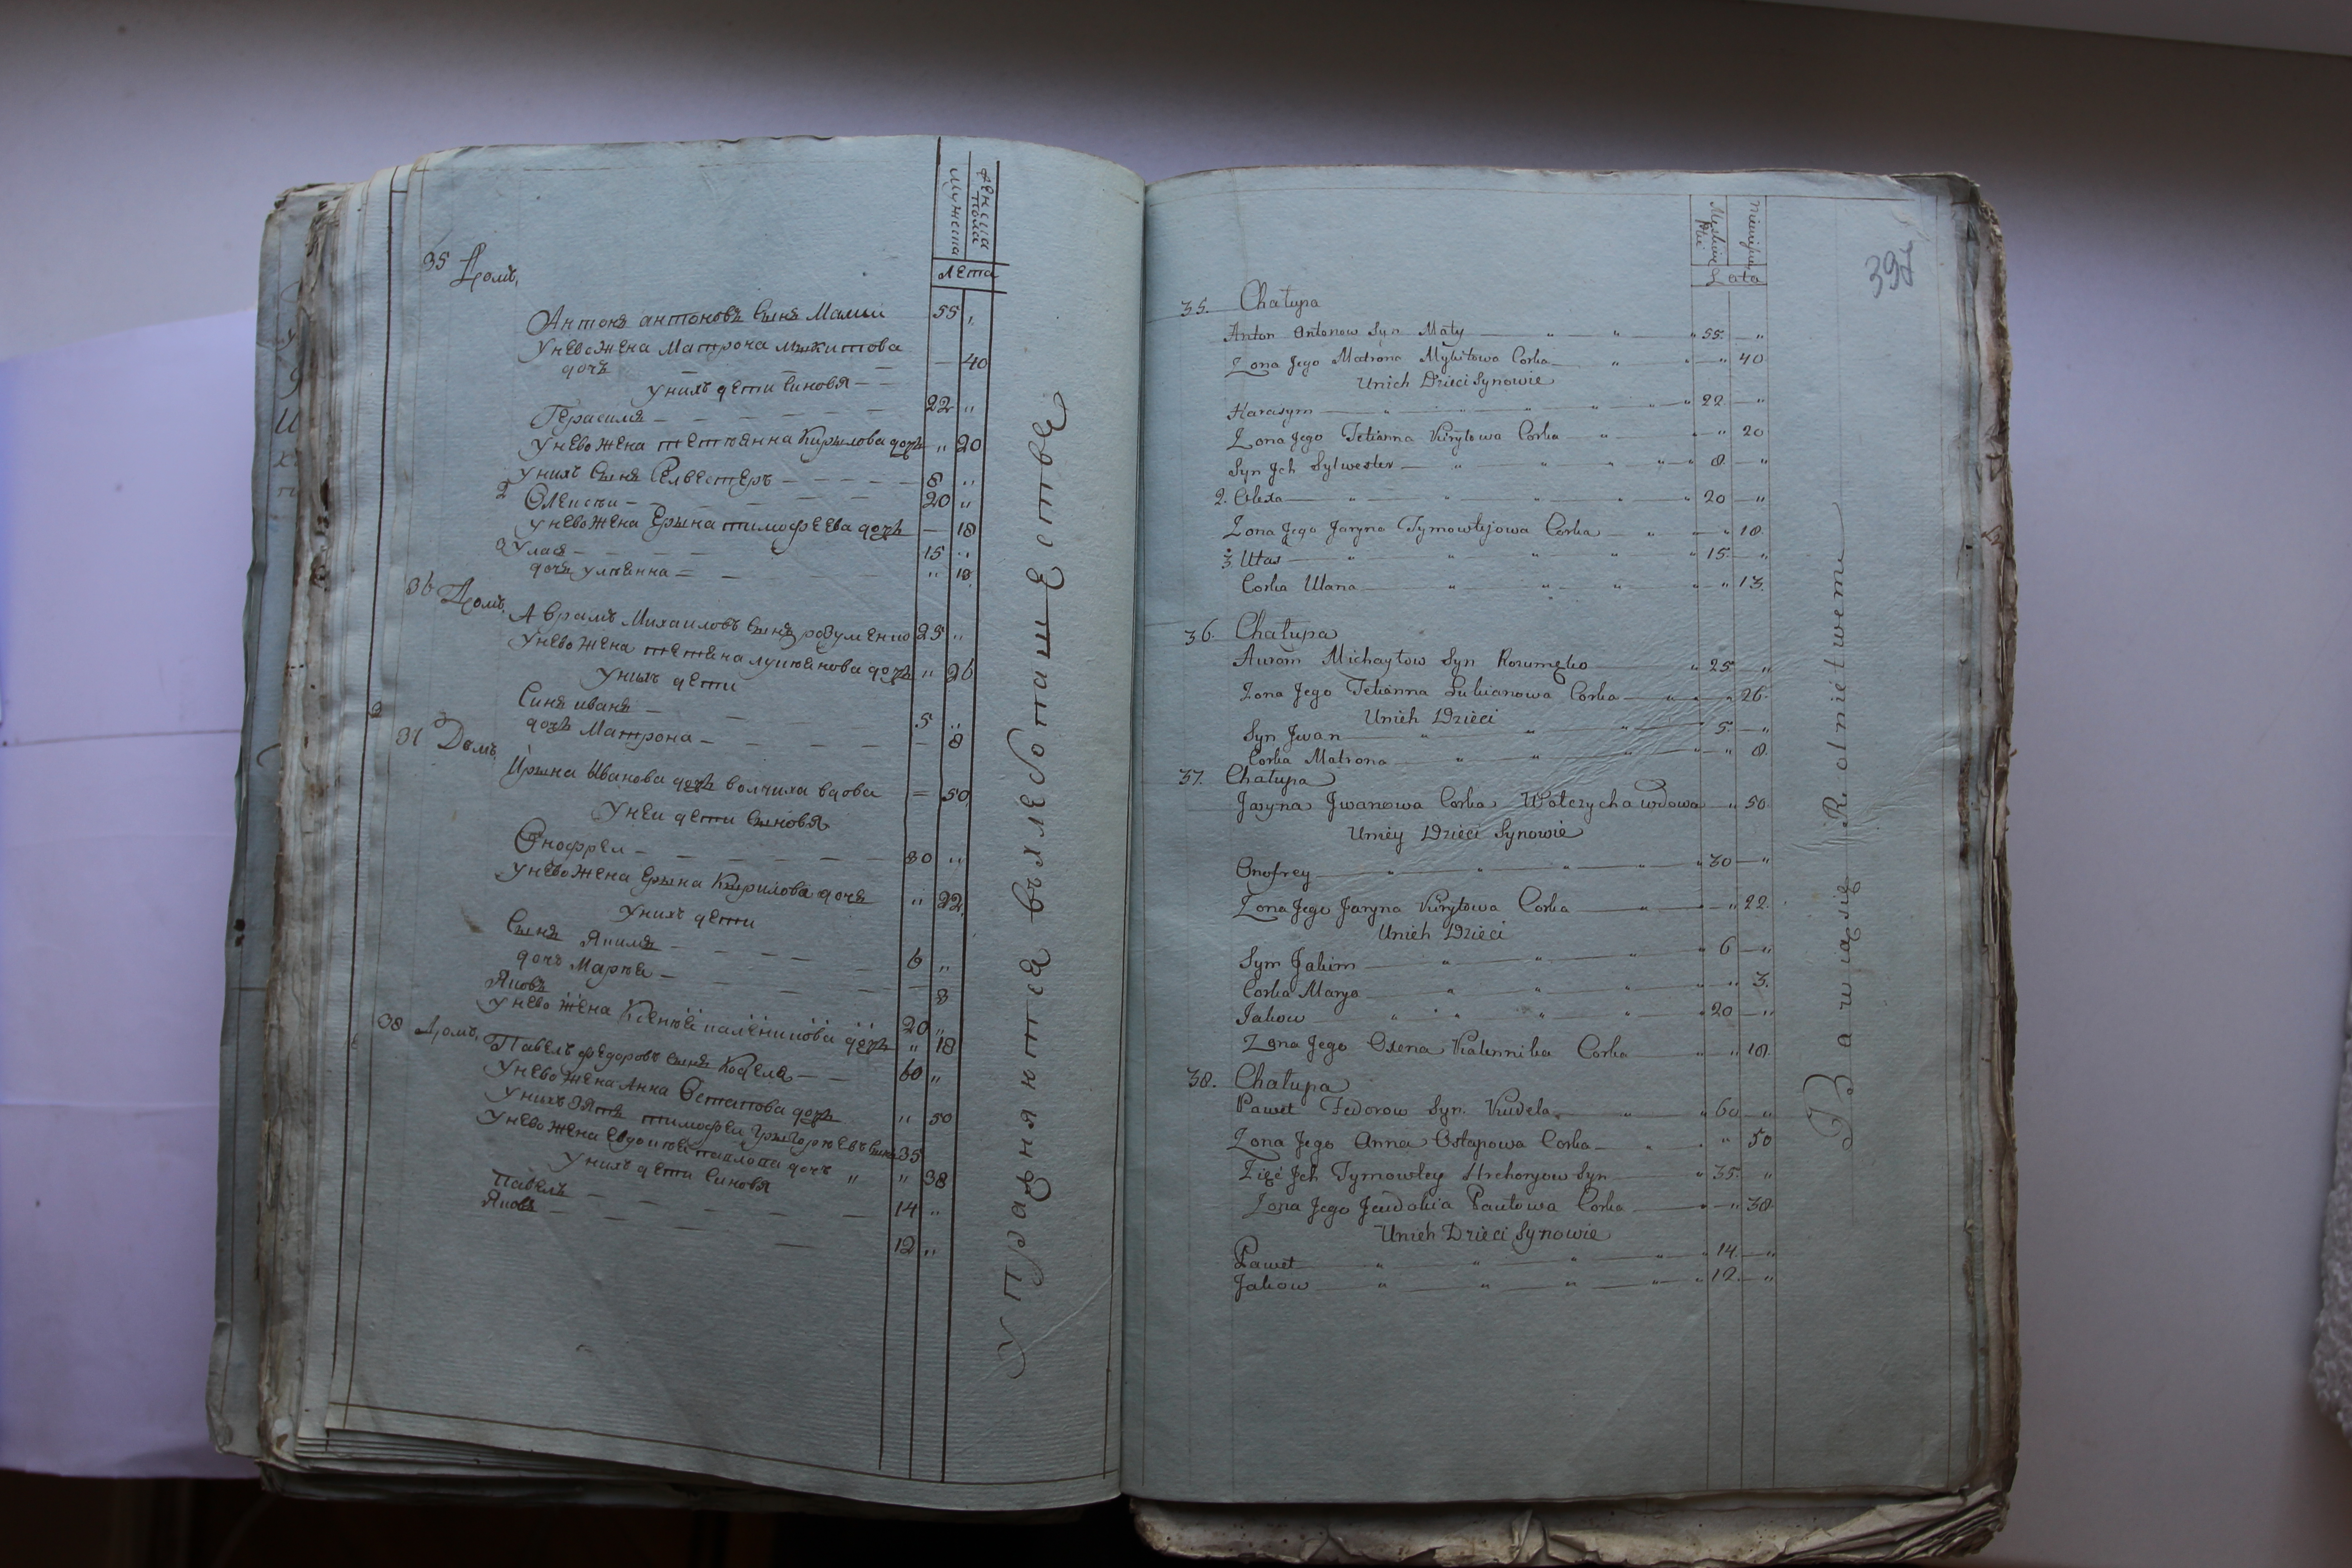 Мужеска
женска пола
лета
35 Домъ
Антонъ антоновъ сынъ Малыи 55 "
У нево жена Матрона мыкитова
дочь — — — — 40
У нихъ дети синовя — —
Герасимъ — — — — — 22 "
У нево жена тетьянна Кирылова дочь " 20
У нихъ сынъ Селвестеръ — — — — — 8 "
2 Олексъи — — — — 20 "
У нево жена Ерына тимофеева дочь — 18
3 Уласъ — — — — 15 "
дочъ ульянна — — — " 13
36 Домъ
Аврамъ Михаиловъ сынъ розуменко 25 "
У нево жена тетяна лукьянова дочь " 26
У нихъ дети
Синъ иванъ — — 5 "
дочь Матрона — — — — — 8
37 Домъ
Ирына Иванова дочь волчиха вдова = 50
У неи дети сыновя
Онофреи — — — — — — 30 "
У нево жена Ерына Кырилова дочъ " 22
У нихъ дети
Сынъ Якимъ — — — — 6 "
дочъ Маръя — — — — — 3
Яковъ 20 "
У нево жена Ксенъя каленикова дочь " 18
38 Домъ
Павелъ федоровъ сынъ Кодела — — 60 "
У нево жена Анна Остапова дочь " 50
У нихъ зять тимофеи Григоръевъ сынъ 35
У нево жена Евдокъя павлова дочъ " " 38
У нихъ дети синовя
Павелъ — — — — — 14 "
Яковъ — — — — 12 "
Упражняются въ хлебопашестве
397
Lata
35. Chałupa
Anton Antonow Syn Mały — " " " 55. — "
Zona Jego Matrona Mykitowa Corka — " " — " 40
Unich Dzieci Synowie
Harasym — " " " " " 22 — "
Zona Jego Tetianna Kuryłowa Corka " — " 20
Syn Jch Sylwester — " " " " " 8. — "
2. Olexa — " " " " " 20 — "
Zona Jego Jaryna Tymowtejowa Corka — " — " 18.
3. Ułas — " " " " " 15. — "
Corka Ulana — " " " — " 13.
36. Chałupa
Auram Michayłow Syn Rozumęko — " 25 — "
Zona Jego Tetianna Lukianowa Corka — " — " 26.
Unich Dzieci
Syn Jwan — " " " 5. — "
Corka Matrona — " " " — " 8.
37. Chałupa
Jaryna Jwanowa Corka Wołczycha wdowa — " 50.
Uniey Dzieci Synowie
Onofrey — " " " " " 30 — "
Zona Jego Jaryna Kuryłowa Corka — " — " 22.
Unich Dzieci
Sym Jakim — " " " " 6 — "
Corka Marya — " " " — " 3.
Jakow — " " " " 20 — "
Zona Jego Oxena Kalennika Corka — " — " 18.
38. Chałupa
Paweł Fedorow Syn. Kudela — " " 60 — "
Zona Jego Anna Ostapowa Corka — " — " 50
Zięć Jch Tymowtey Hrehoryow Syn — " 35. — "
Zona Jego Jeudokia Pawłowa Corka — " — " 38.
Unich Dzieci Synowie
Paweł — " " " " " 14. — "
Jakow — " " " " " 12. — "
Bawią się Rolnictwem